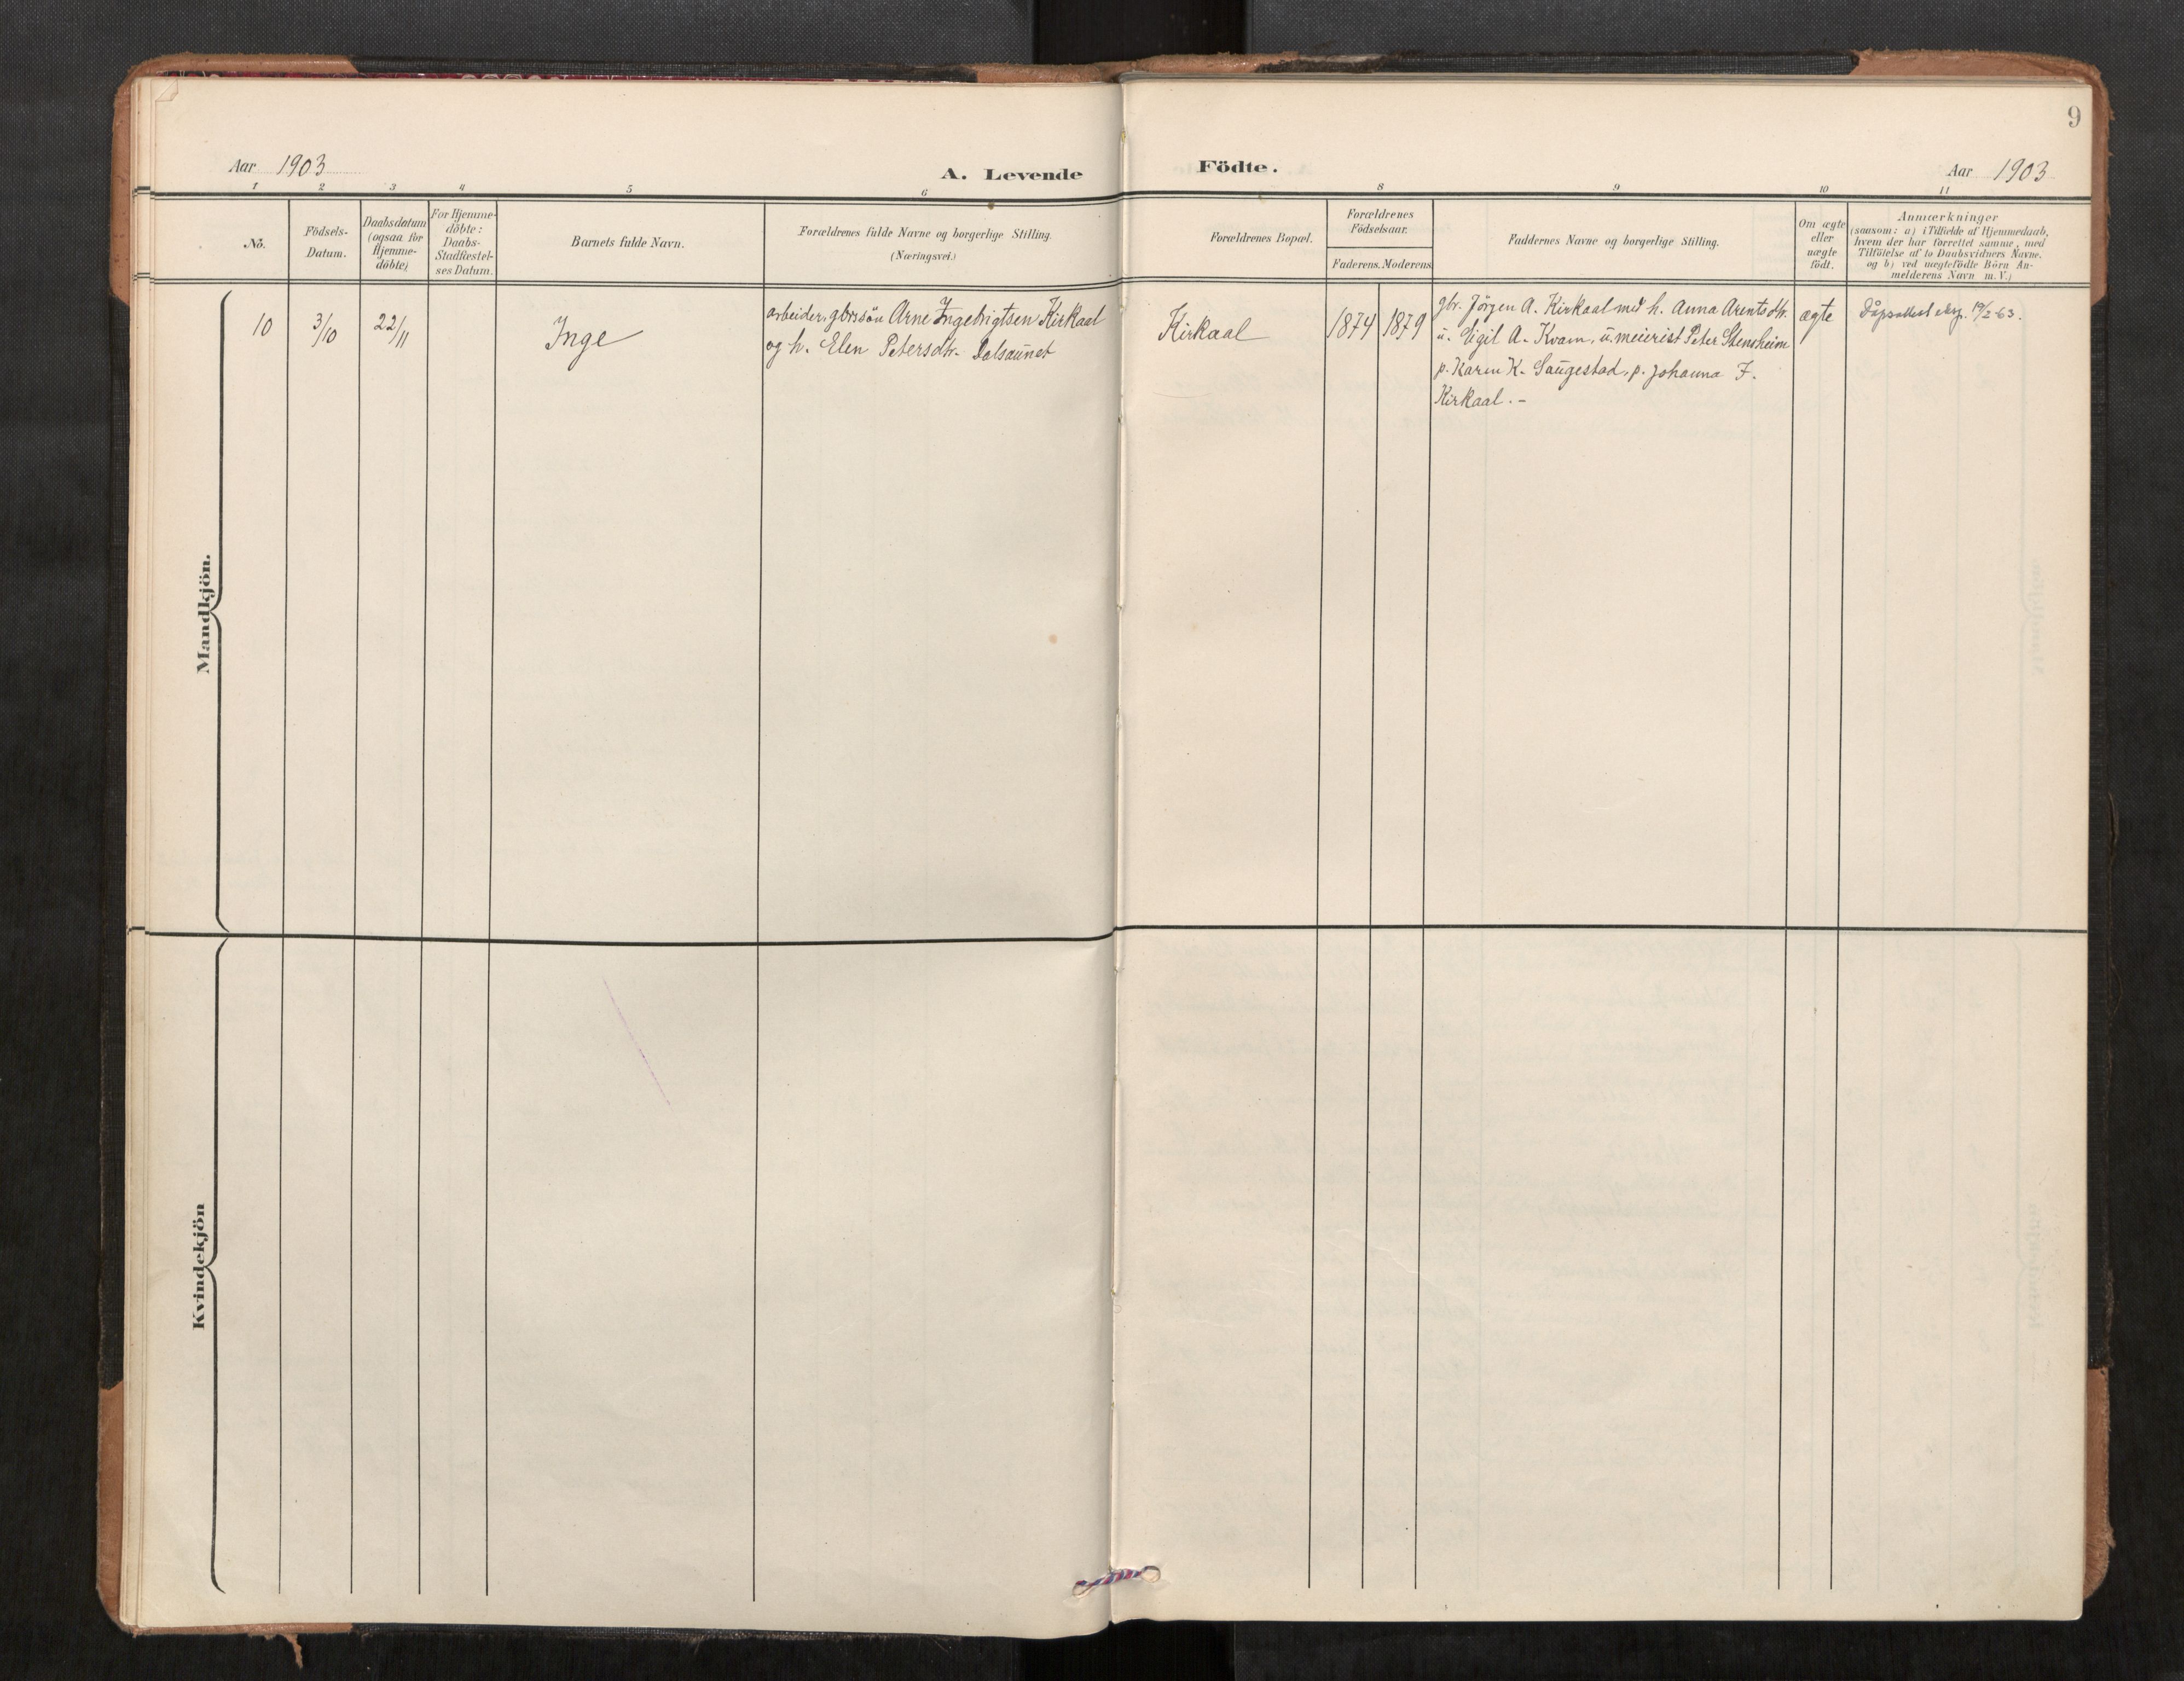 9
Aar 1903
A. Levende Födte.
Aar 1903
1 2 3 4 5 6 8 9 10 11
No.
Födsels-
Datum.
Daabsdatum
(ogsaa for
Hjemme-
döbte)
For Hjemme-
döbte:
Daabs-
Stadfæstel-
ses Datum.
Barnets fulde Navn.
Forældrenes fulde Navne og borgerlige Stilling.
(Næringsvei.)
Forældrenes Bopæl.
Forældrenes
Födselsaar.
Faderens. Moderens
Faddernes Navne og borgerlige Stilling.
Om ægte
eller
uægte
födt.
Anmærkninger
(saasom: a) i Tilfælde af Hjemmedaab,
hvem der har forrettet samme, med
Tilföielse af to Daabsvidners Navne.
og b) ved uægtefödte Börn An-
melderens Navn m. V.)
Mandkjön.
10
3/10
22/11
Inge
arbeider, gbrssön Arne Ingebrigtsen Kirkaal
og h. Elen Petersdtr. Dalsaunet
Kirkaal
1874
1879
gbr. Jörgen A. Kirkaal med h. Anna Arentsdtr.
u. Eigil A. Kvam, u. meierist Peter Stensheim
p. Karen K. Saugestad, p. Johanna I.
Kirkaal. -
ægte
Dåpsattest 19/2-63.
Kvindekjön